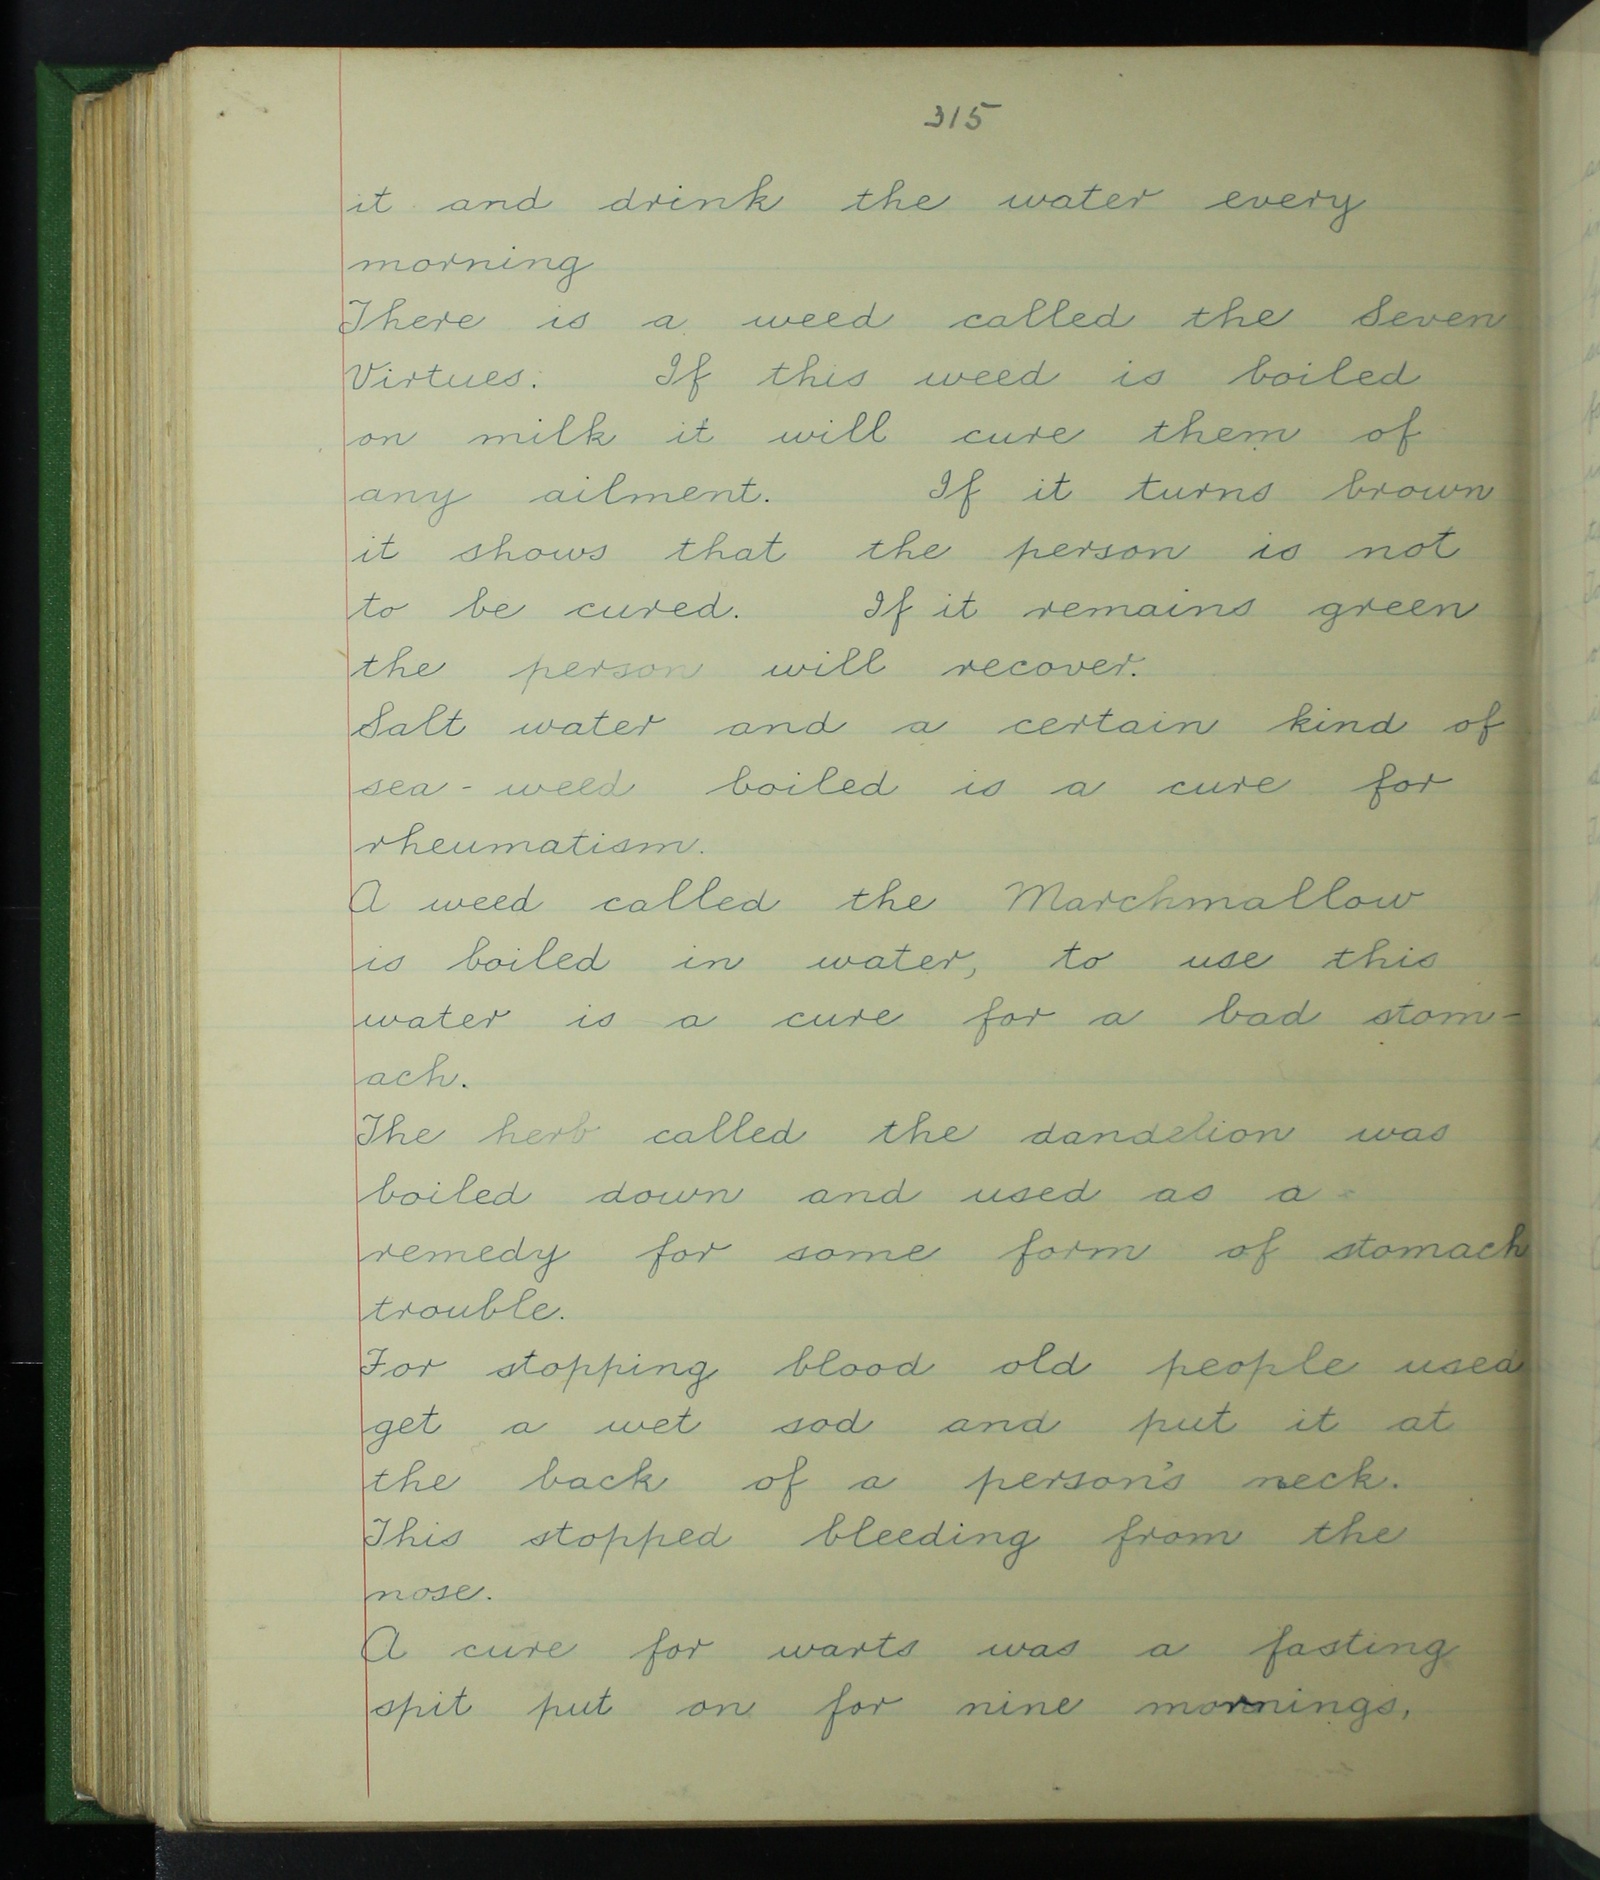 315
it and drink the water every
morning
There is a weed called the Seven
Virtues. If this weed is boiled
on milk it will cure them of
any ailment. If it turns brown
it shows that the person is not
to be cured. If it remains green
the person will recover.
Salt water and a certain kind of
sea-weed boiled is a cure for
rheumatism.
A weed called the Marchmallow
is boiled in water, to use this
water is a cure for a bad stom-
ach.
The herb called the dandelion was
boiled down and used as a
remedy for some form of stomach
trouble.
For stopping blood old people used
get a wet sod and put it at
the back of a person's neck.
This stopped bleeding from the
nose.
A cure for warts was a fasting
spit put on for nine mornings.